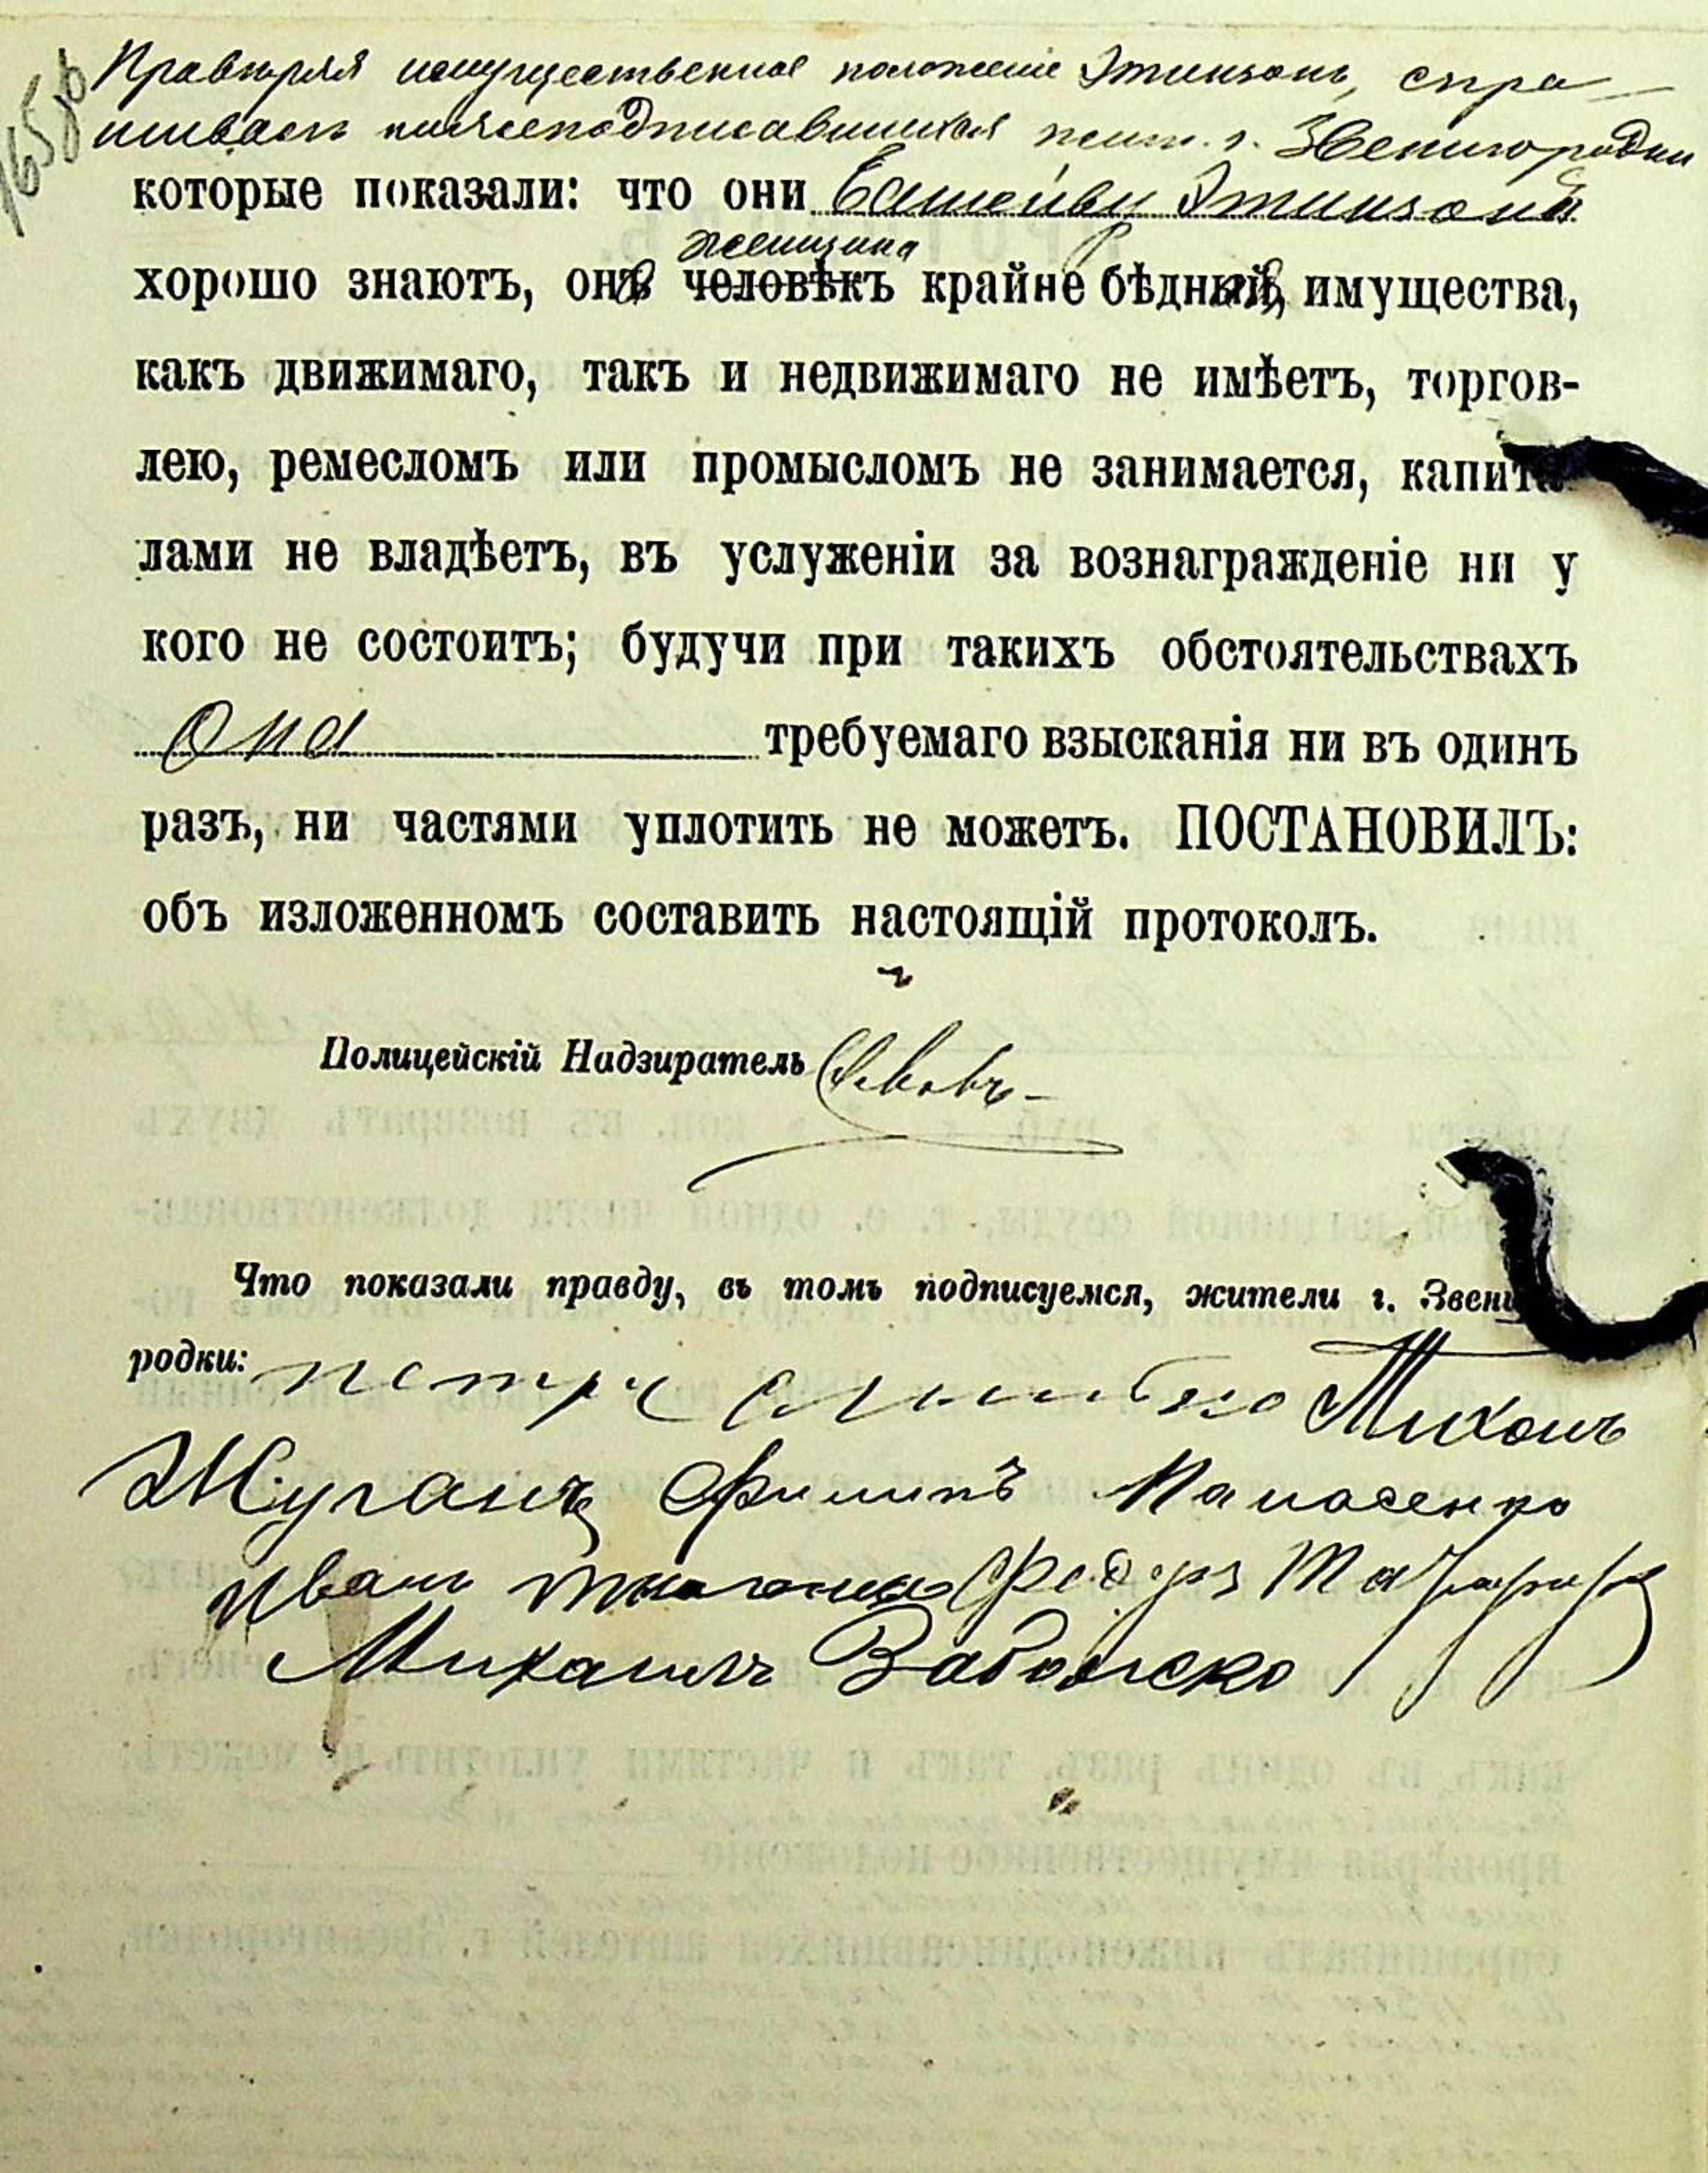 Провѣряя имущественное положеніе Этинзонъ, спра-
шивалъ нижеподписавшихся жит. г. Звенигородки
которые показали: что они Башейву Этинзонъ
женщина
хорошо знаютъ, она человѣкъ крайне бѣдная, имущества,
какъ движимаго, такъ и недвижимаго не имѣетъ, торгов-
лею, ремесломъ или промысломъ не занимается, капита-
лами не владѣетъ, въ услуженіи за вознагражденіе ни у
кого не состоитъ; будучи при такихъ обстоятельствахъ
она требуемаго взысканія ни въ одинъ
разъ, ни частями уплотить не можетъ. ПОСТАНОВИЛЪ:
объ изложенномъ составить настоящій протоколъ.
Полицейскій Надзиратель
Что показали правду, въ томъ подписуемся, жители г. Звени
родки: Петръ Тихонъ
Жуганъ Филипъ Панасенко
Иванъ Федоръ
Михаилъ